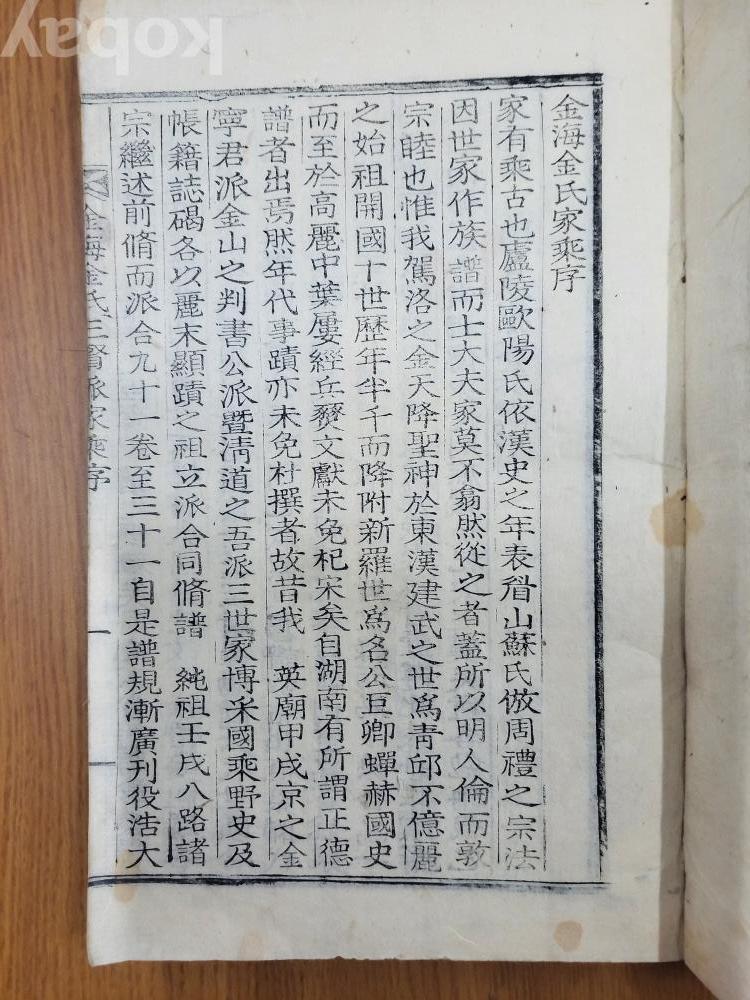 金海金氏家乘序
家有乘古也廬陵歐陽氏依漢史之年表眉山蘇氏倣周禮之宗法
因世家作族譜而士大夫家莫不翕然從之者蓋所以明人倫而敦
宗睦也惟我駕洛之金天降聖神於東漢建武之世爲靑邱不億麗
之始祖開國十世歷年半千而降附新羅世爲名公巨卿蟬赫國史
而至於高麗中葉屢經兵燹文獻未免杞宋矣自湖南有所謂正德
譜者出焉然年代事蹟亦未免杜撰者故昔我 英廟甲戌京之金
寧君派金山之判書公派曁淸道之吾派三世家博采國乘野史及
帳籍誌碣各以麗末顯蹟之祖立派合同脩譜 純祖壬戌八路諸
宗繼述前脩而派合九十一卷至三十一自是譜規漸廣刊役浩大
金海金氏三賢派家乘序
一
kobay